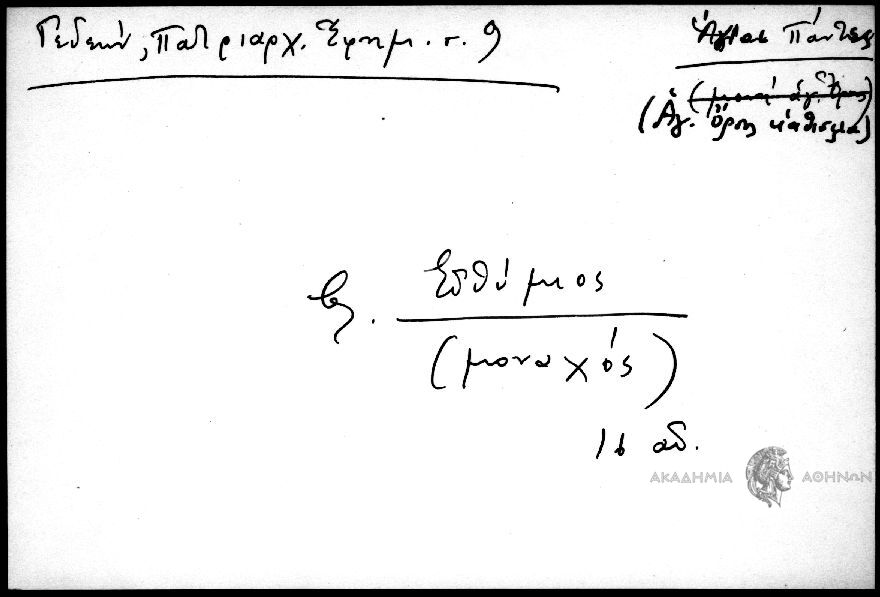 Γεδεών, Πατριαρχ. Ἐφημ. σ. 9
Ἅγιοι Πάντες
(μονή ἁγ. Ὄρους)
(Ἁγ. Ὄρος κάθισμα)
βλ. Εὐθύμιος
(μοναχός)
16 αἰ.
ΑΚΑΔΗΜΙΑ ΑΘΗΝΩΝ